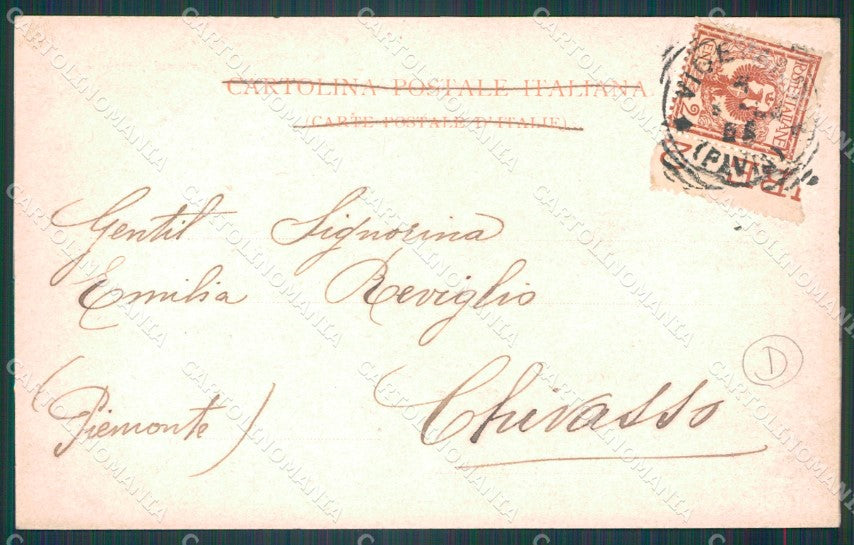 CARTOLINA POSTALE ITALIANA
(CARTE POSTALE D'ITALIE)
POSTE ITALIANE
CENT 2
Gentil Signorina
Emilia Reviglio
(Piemonte)
Chivasso
D
CARTOLINOMANIA